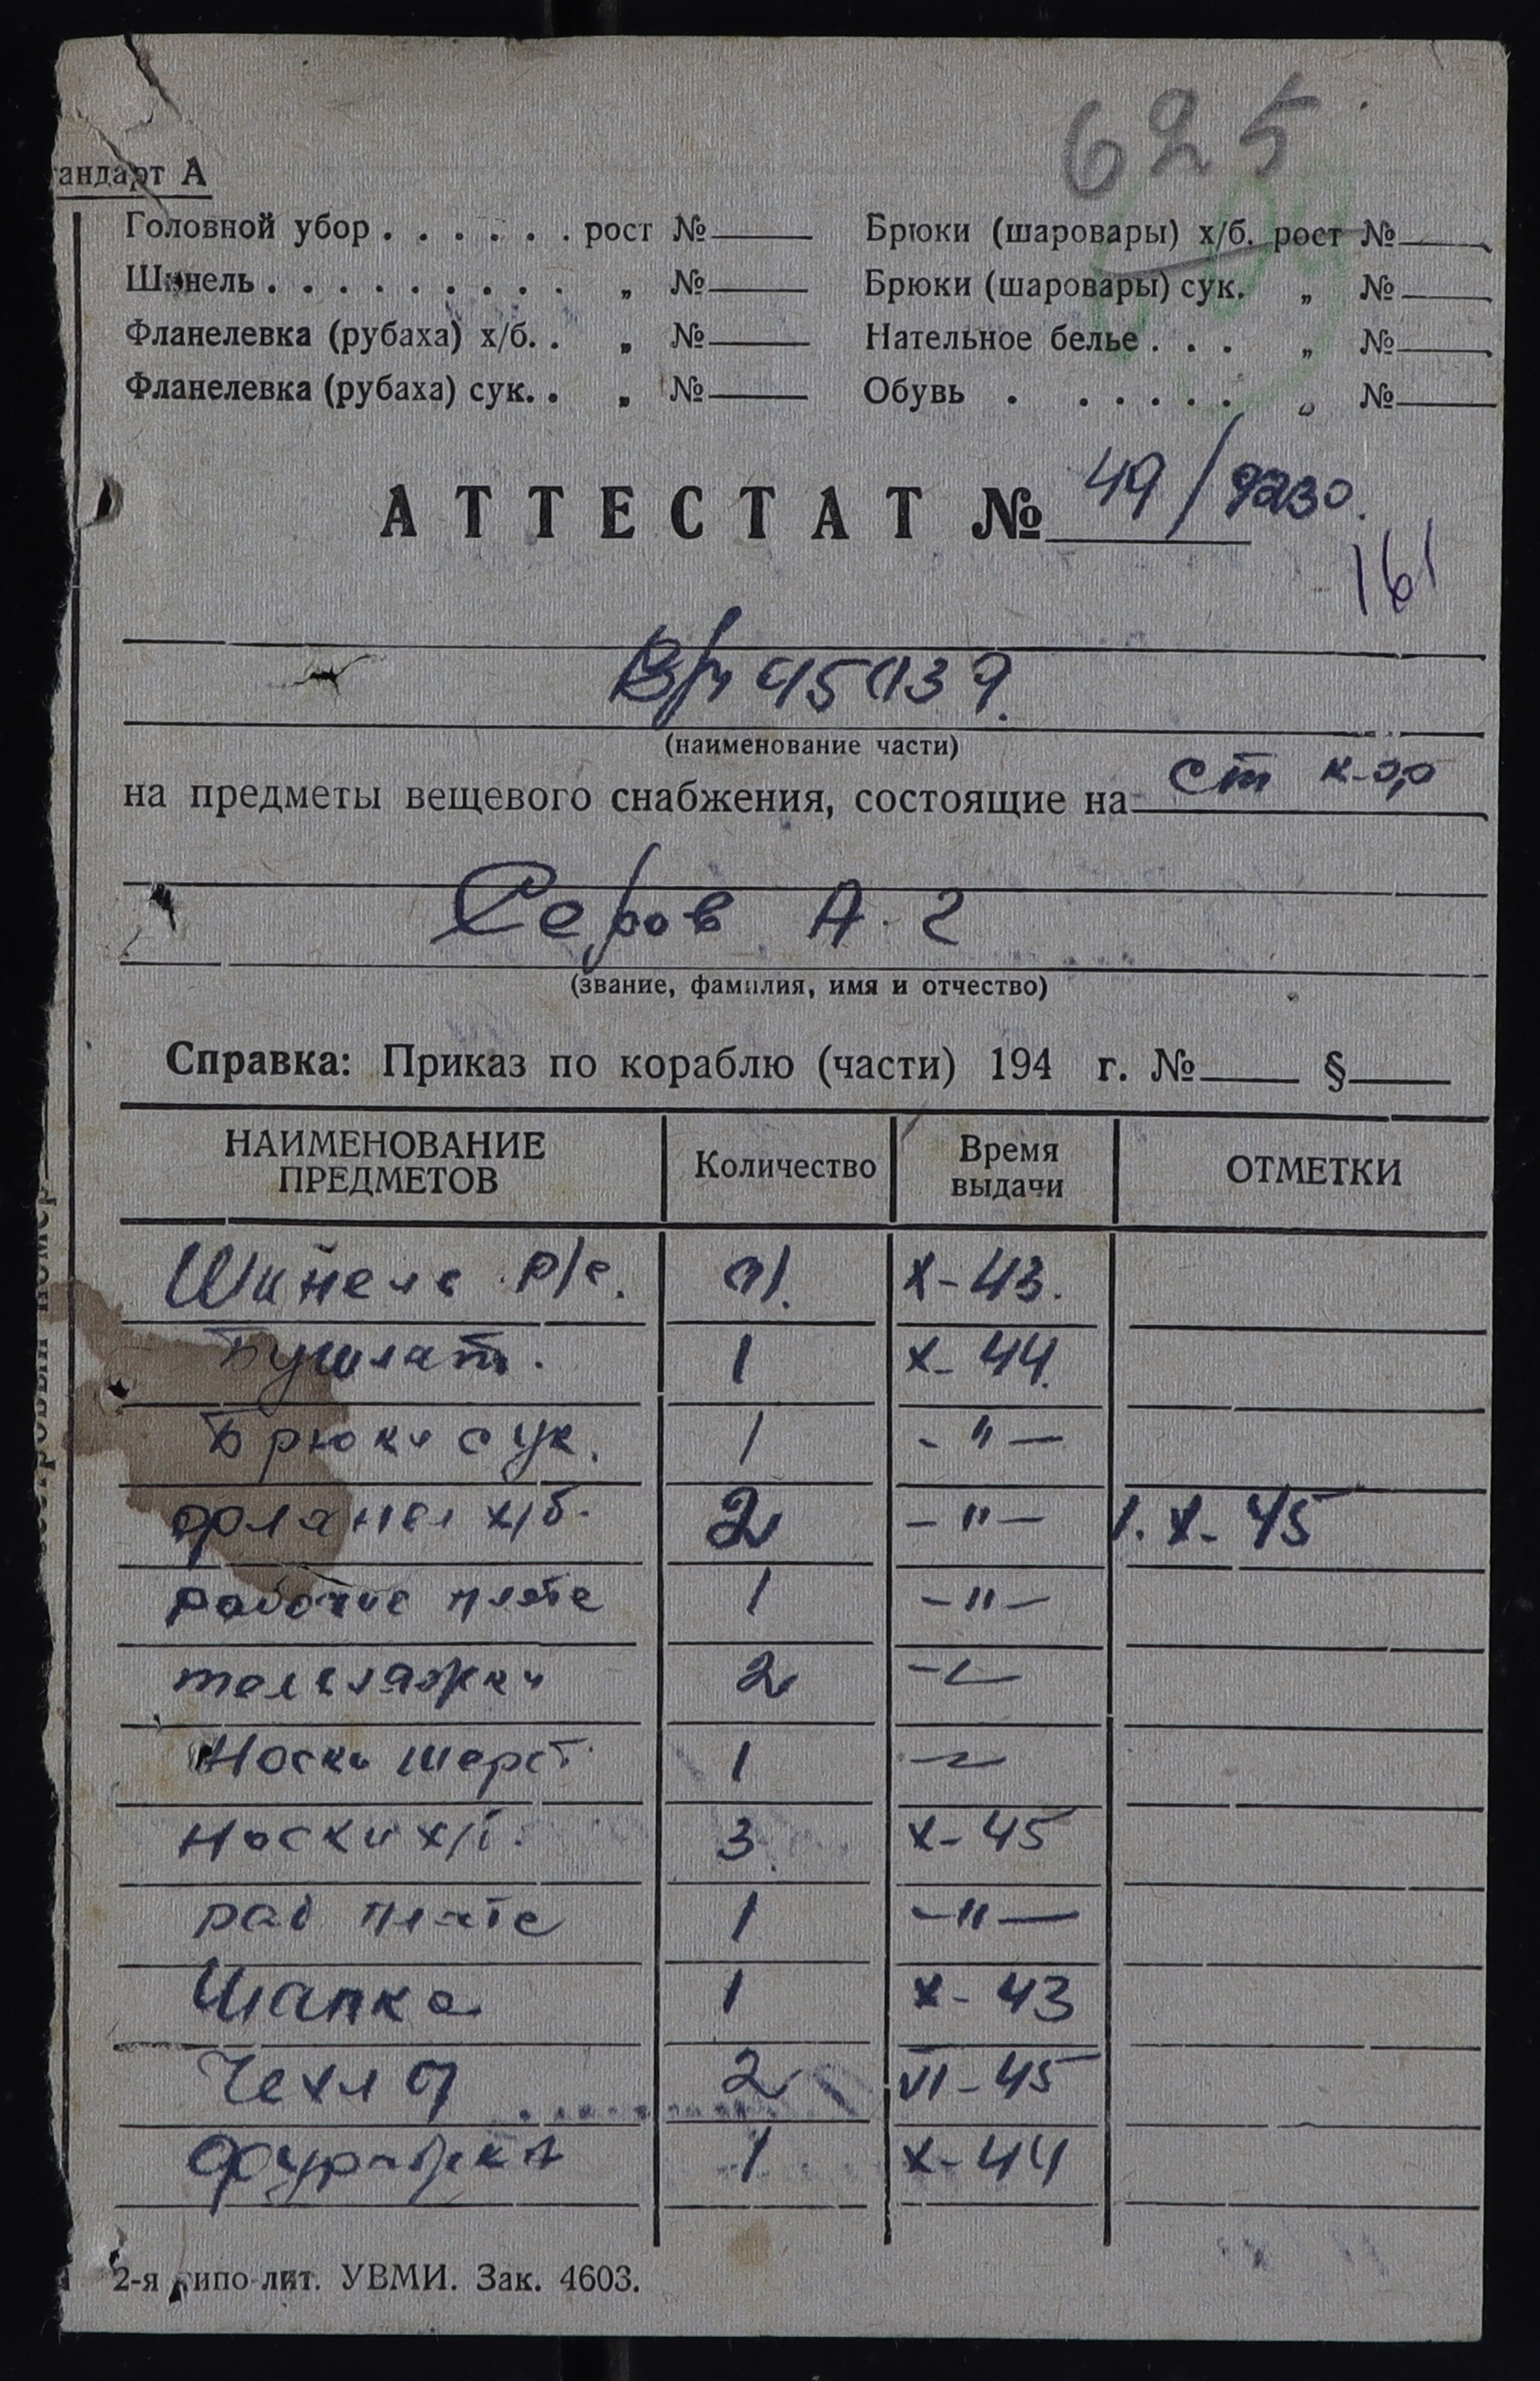 625
андарт А
Головной убор . . . . . . рост № Брюки (шаровары) х/б. рост №
Шинель . . . . . . . . . „ № Брюки (шаровары) сук. „ №
Фланелевка (рубаха) х/б. . „ № Нательное белье . . . „ №
Фланелевка (рубаха) сук. . „ № Обувь . . . . . . „ №
АТТЕСТАТ № 49/9230.
161
(наименование части)
на предметы вещевого снабжения, состоящие на ст к-р
Серов А. Г
(звание, фамилия, имя и отчество)
Справка: Приказ по кораблю (части) 194 г. № §
НАИМЕНОВАНИЕ ПРЕДМЕТОВ Количество Время выдачи ОТМЕТКИ
Шинель р/с. 1. X-43.
Бушлат. 1 X-44.
Брюки сук. 1 - " -
фланел х/б. 2 - " - 1. X-45
рабочие плате 1 - " -
тельняжки 2 - " -
Носки шерст. 1 - " -
Носки х/б. 3 X-45
раб плате 1 - " -
Шапка 1 X-43
Чехлы 2 VI-45
фуражка 1 X-44
2-я типо-лит. УВМИ. Зак. 4603.